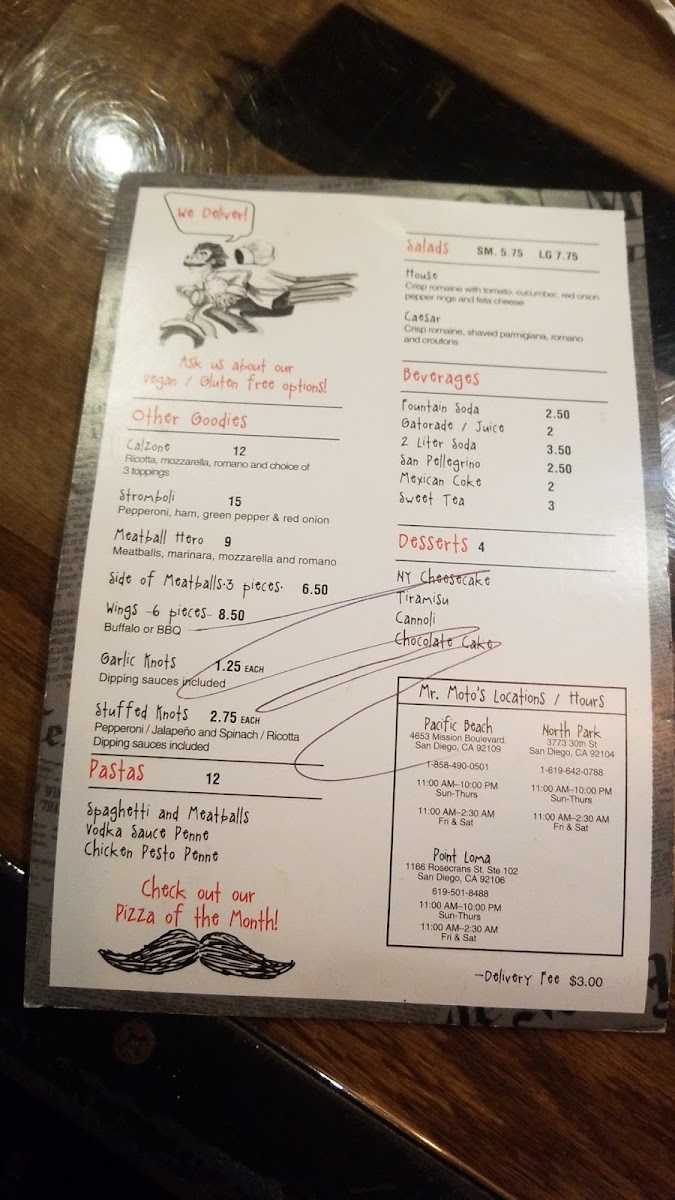 We Deliver!
Ask us about our
vegan / Gluten free options!
Other Goodies
Calzone 12
Ricotta, mozzarella, romano and choice of
3 toppings
Stromboli 15
Pepperoni, ham, green pepper & red onion
Meatball Hero 9
Meatballs, marinara, mozzarella and romano
Side of Meatballs-3 pieces- 6.50
Wings -6 pieces- 8.50
Buffalo or BBQ
Garlic Knots 1.25 EACH
Dipping sauces included
Stuffed Knots 2.75 EACH
Pepperoni / Jalapeño and Spinach / Ricotta
Dipping sauces included
Pastas 12
Spaghetti and Meatballs
Vodka Sauce Penne
Chicken Pesto Penne
Check out our
Pizza of the Month!
Salads SM. 5.75 LG 7.75
House
Crisp romaine with tomato, cucumber, red onion
pepper rings and feta cheese
Caesar
Crisp romaine, shaved parmigiana, romano
and croutons
Beverages
Fountain Soda 2.50
Gatorade / Juice 2
2 Liter Soda 3.50
San Pellegrino 2.50
Mexican Coke 2
Sweet Tea 3
Desserts 4
NY Cheesecake
Tiramisu
Cannoli
Chocolate Cake
Mr. Moto's Locations / Hours
Pacific Beach
4653 Mission Boulevard.
San Diego, CA 92109
1-858-490-0501
11:00 AM–10:00 PM
Sun-Thurs
11:00 AM–2:30 AM
Fri & Sat
North Park
3773 30th St
San Diego, CA 92104
1-619-642-0788
11:00 AM–10:00 PM
Sun-Thurs
11:00 AM–2:30 AM
Fri & Sat
Point Loma
1166 Rosecrans St. Ste 102
San Diego, CA 92106
619-501-8488
11:00 AM–10:00 PM
Sun-Thurs
11:00 AM–2:30 AM
Fri & Sat
-Delivery Fee $3.00